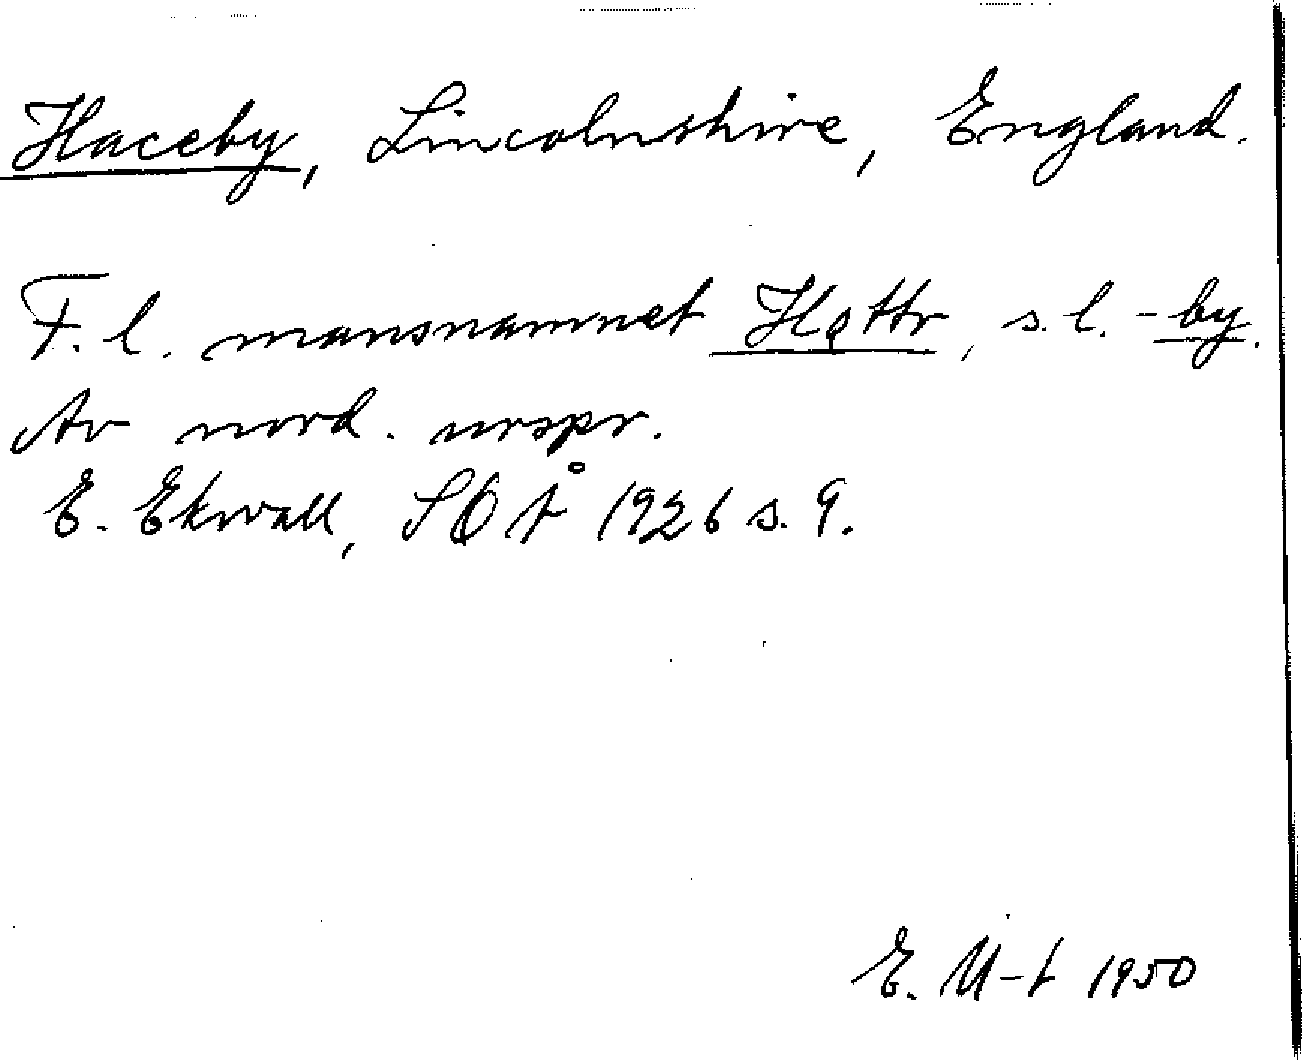 Haceby, Lincolnshire, England.
F. l. mansnamnet Hǫttr, s. l. -by.
Av nord. urspr.
E. Ekwall, SOÅ 1926 s. 9.
E. U-t 1950